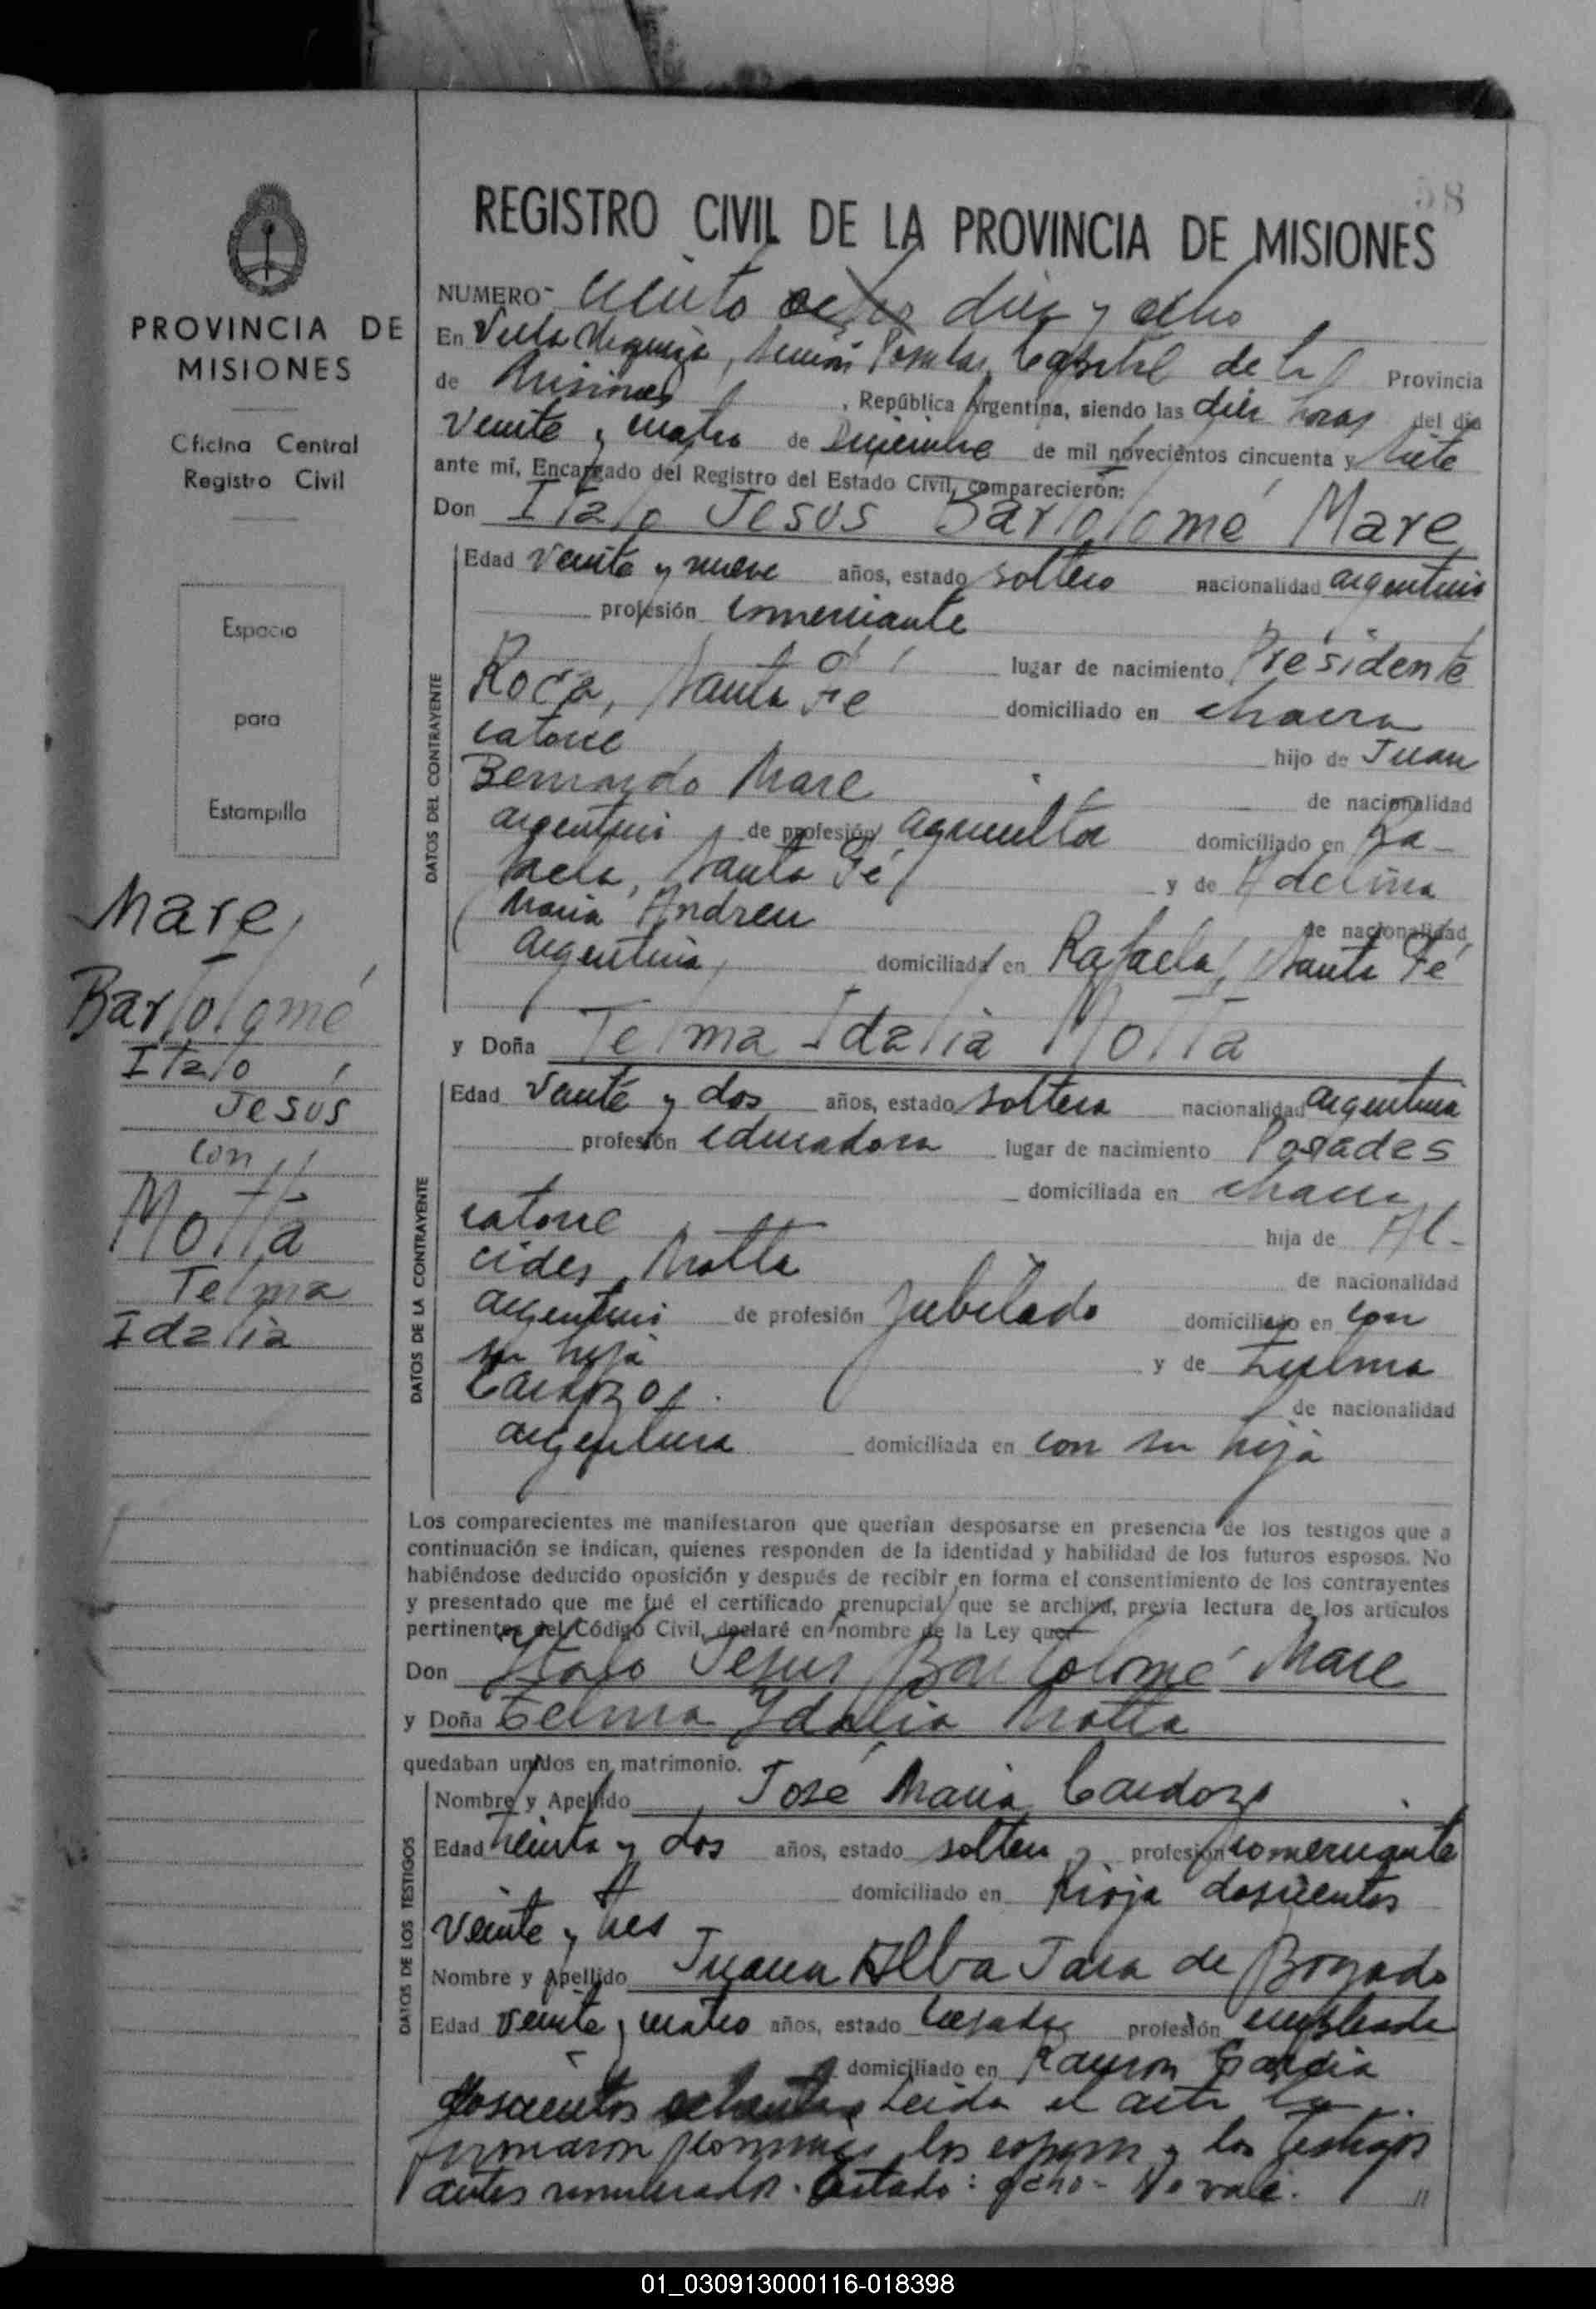 58
REGISTRO CIVIL DE LA PROVINCIA DE MISIONES
NUMERO- ciento ocho diez y ocho
En Villa Urquiza, sección Posadas, Capital de la Provincia
de Misiones, República Argentina, siendo las diez horas del día
veinte y cuatro de Diciembre de mil novecientos cincuenta y siete
ante mí, Encargado del Registro del Estado Civil, comparecieron:
Don Italo Jesús Bartolomé Mare
Edad veinte y nueve años, estado soltero nacionalidad argentino
profesión comerciante
lugar de nacimiento Presidente
Roca, Santa Fé domiciliado en chacra
catorce hijo de Juan
Bernardo Mare de nacionalidad
argentino de profesión agricultor domiciliado en Ra-
faela, Santa Fé y de Adelina
María Andreu de nacionalidad
argentina, domiciliada en Rafaela, Santa Fé
DATOS DEL CONTRAYENTE
y Doña Telma Idalia Motta
Edad veinte y dos años, estado soltera nacionalidad argentina
profesión educadora lugar de nacimiento Posadas
domiciliada en chacra
catorce hija de Al-
cides Motta de nacionalidad
argentino de profesión jubilado domiciliado en con
su hija y de Zulma
Cardozo de nacionalidad
argentina domiciliada en con su hija
DATOS DE LA CONTRAYENTE
Los comparecientes me manifestaron que querían desposarse en presencia de los testigos que a
continuación se indican, quienes responden de la identidad y habilidad de los futuros esposos. No
habiéndose deducido oposición y después de recibir en forma el consentimiento de los contrayentes
y presentado que me fué el certificado prenupcial que se archiva, previa lectura de los artículos
pertinentes del Código Civil, declaré en nombre de la Ley que:
Don Italo Jesus Bartolomé Mare
y Doña Telma Ydalia Motta
quedaban unidos en matrimonio.
Nombre y Apellido José María Cardozo
Edad treinta y dos años, estado soltero profesión comerciante
domiciliado en Rioja doscientos
veinte y tres
Nombre y Apellido Juana Alba Jara de Bogado
Edad veinte y cuatro años, estado casada profesión empleada
domiciliado en Ramon García
doscientos Leida el acta la
firmaron conmigo los esposos y los testigos
antes nombrados. Testado: ocho- No vale.
DATOS DE LOS TESTIGOS
PROVINCIA DE
MISIONES
Oficina Central
Registro Civil
Espacio
para
Estampilla
Mare
Bartolomé
Italo
Jesús
con
Motta
Telma
Idalia
01_030913000116-018398